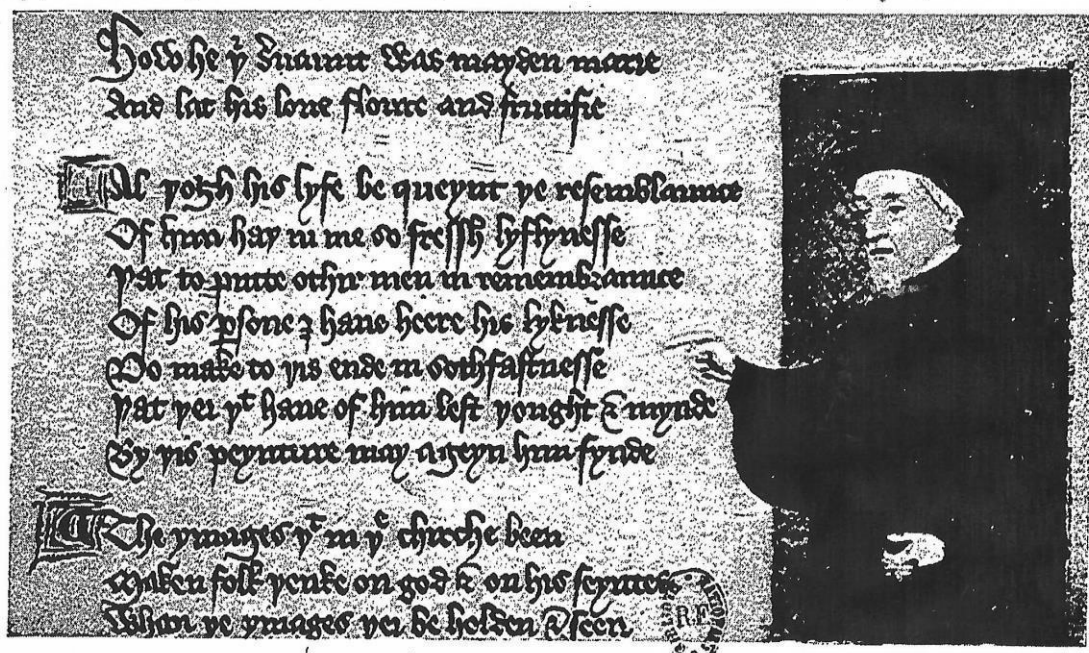 How he þͬ ẜuaunt was mayden marie
And lat his loue floure and fructifie
Al þogh his lyfe be queynt þe resemblaunce
Of him haþ in me so fressh lyflynesse
Þat to putte othir men in remembraunce
Of his ꝑsone I haue heere his lyknesse
Do make to þis ende in sothfastnesse
Þat þei þͭ haue of him left þought & mynde
By þis peynture may ageyn him fynde
The ymages þͭ in þͤ chirche been
Maken folk þenke on god & on his seyntes
Whan þe ymages þei be holden & seen